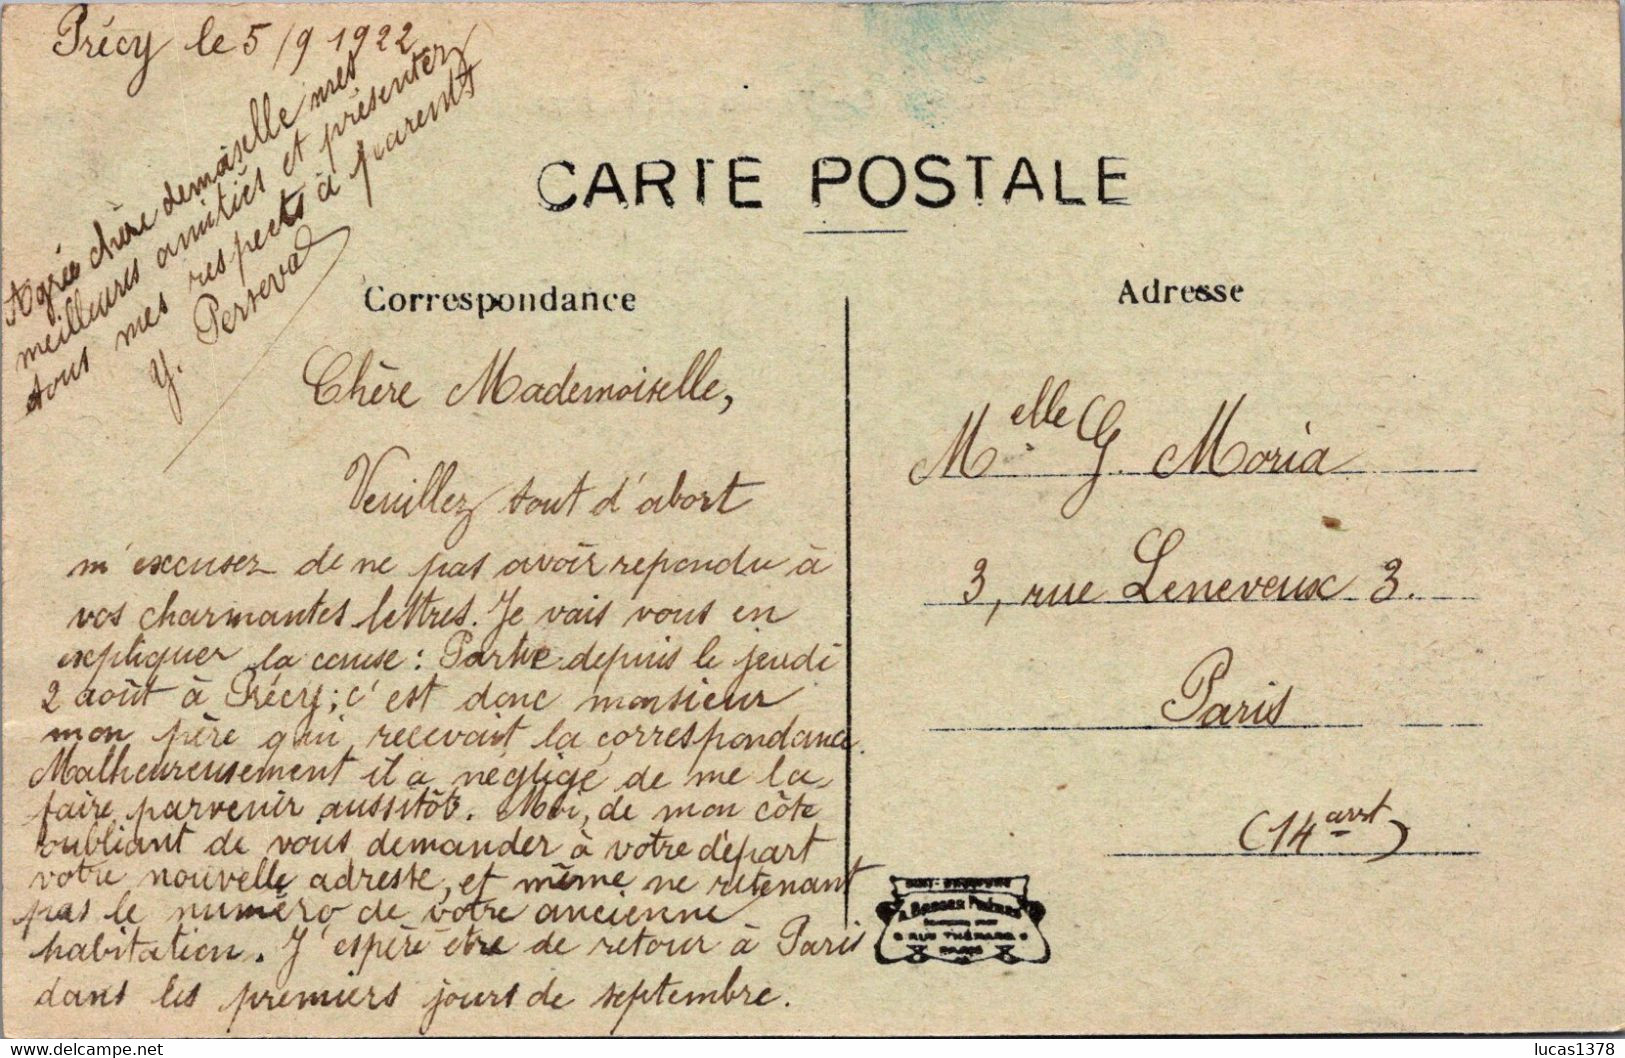 Précy le 5/9 1922
CARTE POSTALE
Correspondance
Adresse
Chère Mademoiselle,
Veuillez tout d'abort
m'excuser de ne pas avoir repondu à
vos charmantes lettres. Je vais vous en
expliquer la cause : Partie depuis le jeudi
2 août à Précy; c'est donc monsieur
mon père qui recevait la correspondance.
Malheureusement il a négligé de me la
faire parvenir aussitôt. Moi, de mon côte
oubliant de vous demander à votre départ
votre nouvelle adresse, et même ne retenant
pas le numéro de votre ancienne
habitation. J'espère être de retour à Paris
dans les premiers jours de septembre.
Agrée chère demoiselle mes
meilleures amitiés et présenter
tous mes respects à parents
Y. Perseval
Melle G. Moria
3, rue Leneveux 3.
Paris
(14 arrt)
A. BREGER FRÈRES
9 RUE THÉNARD 9
PARIS
lucas1378